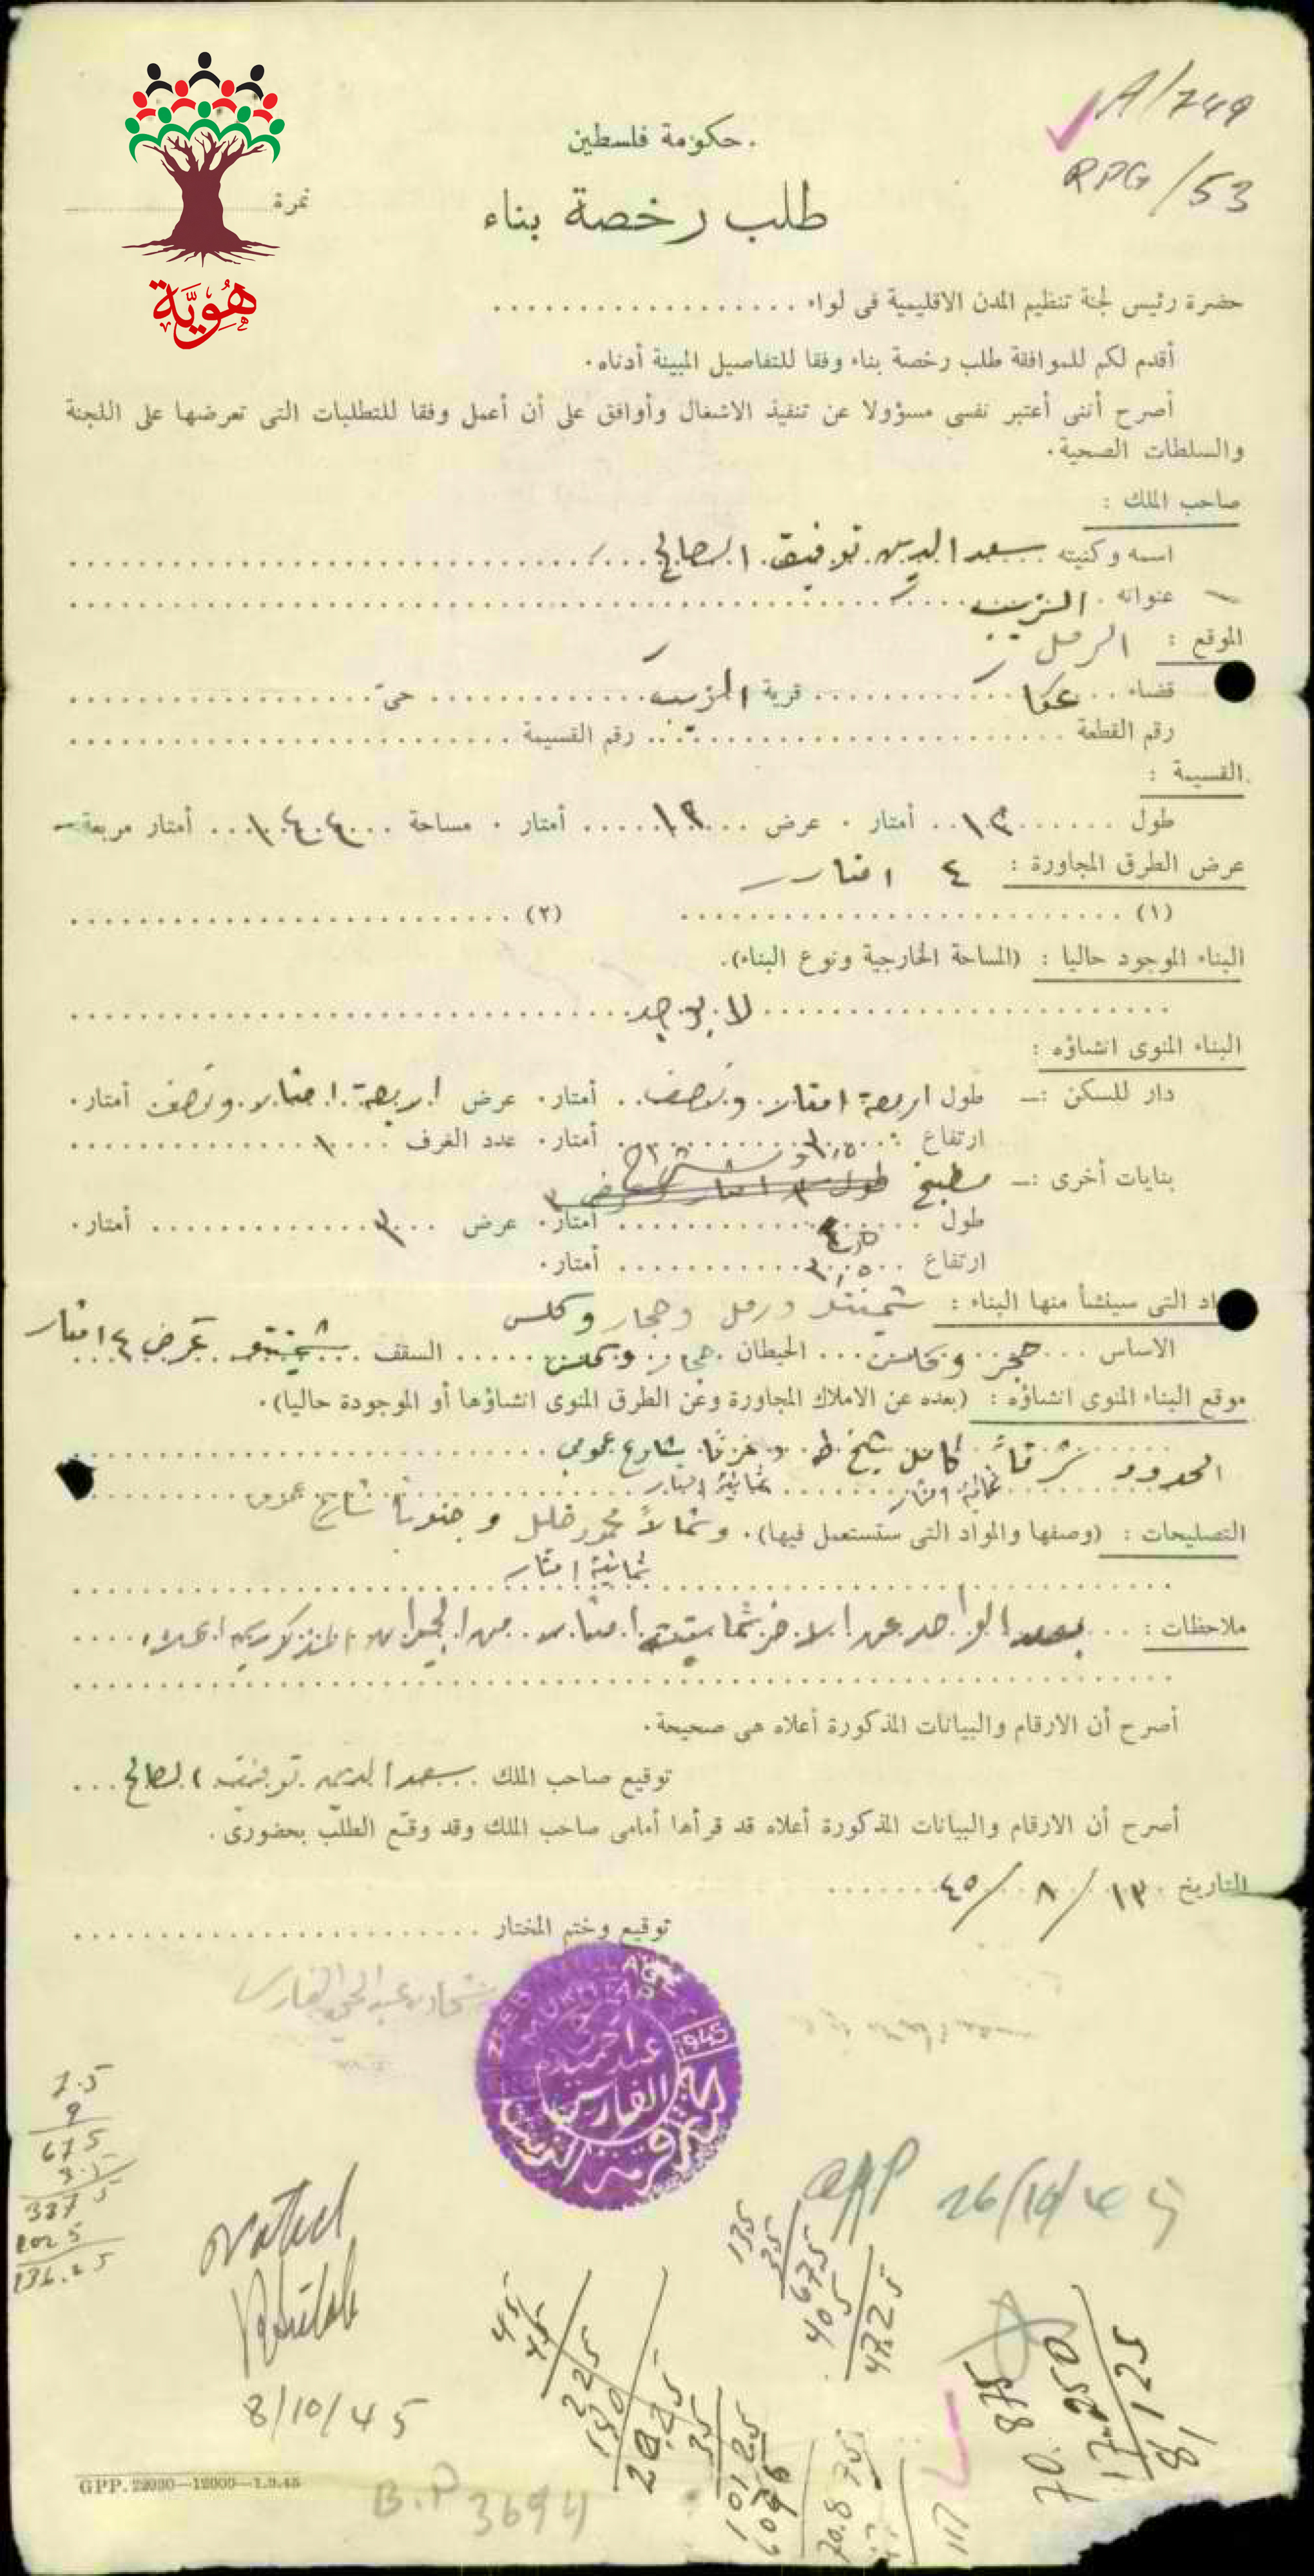 A/749
RPG/53
حكومة فلسطين
طلب رخصة بناء
نمرة
هُويَّة
حضرة رئيس لجنة تنظيم المدن الاقليمية فى لواء
أقدم لكم للموافقة طلب رخصة بناء وفقا للتفاصيل المبينة أدناه.
أصرح أننى أعتبر نفسى مسؤولا عن تنفيذ الاشغال وأوافق على أن أعمل وفقا للمتطلبات التى تعرضها على اللجنة
والسلطات الصحية.
صاحب الملك :
اسمه وكنيته سعد الدين توفيق الصالح
عنوانه الزيب
الموقع : الرمل
قضاء عكا قرية الزيب حىّ
رقم القطعة رقم القسيمة
القسيمة :
طول ١٢ أمتار . عرض ١٢ أمتار . مساحة ١٤٤ أمتار مربعة
عرض الطرق المجاورة : ٤ امتار
(١) (٢)
البناء الموجود حاليا : (المساحة الخارجية ونوع البناء).
لا يوجد
البناء المنوى انشاؤه :
دار للسكن :— طول اربعة امتار ونصف أمتار. عرض اربعة امتار ونصف أمتار.
ارتفاع ٣,٥٠ أمتار. عدد الغرف ١
بنايات أخرى :— مطبخ
طول ٤,٥ أمتار. عرض ٣ أمتار.
ارتفاع ٣,٥٠ أمتار.
اد التى سينشأ منها البناء : شمينتو ورمل وحجار وكلس
الاساس حجر وكلس الحيطان حجار وكلس السقف شمينتو عرض ٤ امتار
موقع البناء المنوى انشاؤه : (بعده عن الاملاك المجاورة وعن الطرق المنوى انشاؤها أو الموجودة حاليا).
الحدود شرقاً كامل شيخ طه وغربا شارع عمومي
ثمانية امتار ثمانية امتار
التصليحات : (وصفها والمواد التى ستستعمل فيها). وشمالاً محمود خليل و جنوباً شارع عمومي
ثمانية امتار
ملاحظات : بعد الواحد عن الاخر ثمانية امتار من الجيران المذكورين اعلاه
أصرح أن الارقام والبيانات المذكورة أعلاه هى صحيحة.
توقيع صاحب الملك سعد الدين توفيق الصالح
أصرح أن الارقام والبيانات المذكورة أعلاه قد قرأها أمامى صاحب الملك وقد وقع الطلب بحضورى.
التاريخ ١٣ / ٨ / ٤٥
توقيع وختم المختار
MUKHTAR
1945
الفارس
7.5
9
675
3375
2025
236.25
app 26/10/45
8/10/45
135
35
675
405
4725
225
180
875
70.
81125
GPP. 22030—12000—1.9.45
B.P 3694